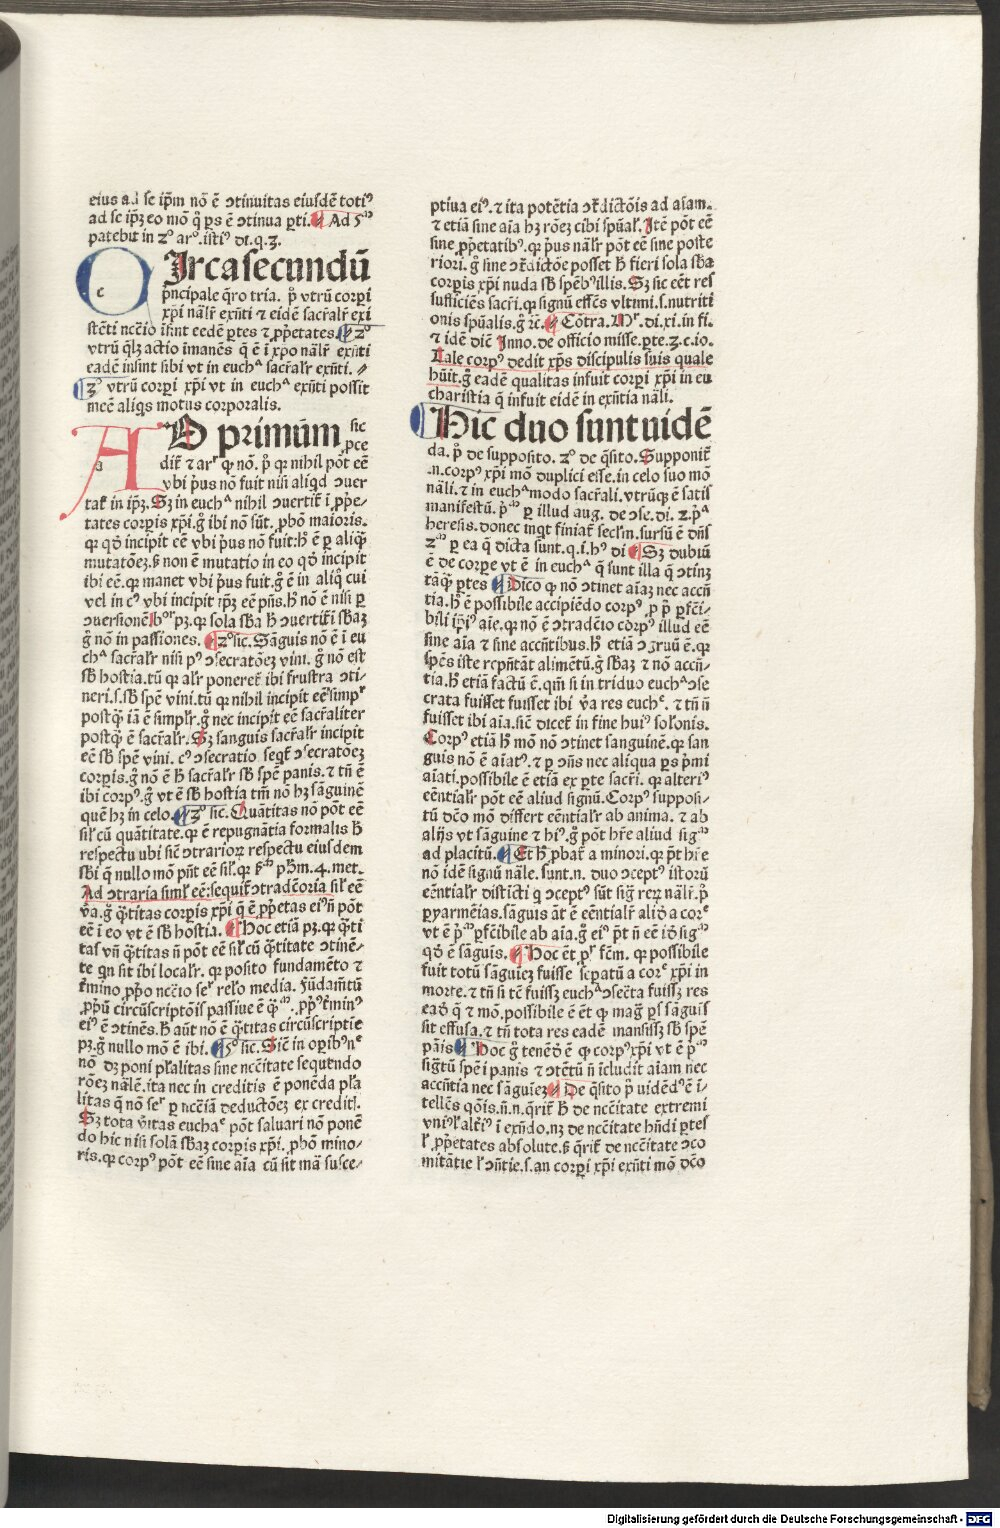 eius ad se ip̄m nō ē ↄtinuitas eiusdē totiꝰ
ad se ipꝫ eo mō q̄ ꝑs ē ↄtinua ꝑti. Ad 5ᵐ
patebit in 2º arº. istiꝰ di. q. 3.
CIrca secundū
p̄ncipale q̄ro tria. p̄ vtrū corpi
xp̄i nāl̄r exn̄ti ⁊ eidē sacr̄al̄r exi
stēti nccīo īsint eedē ꝑtes ⁊ ꝓp̄etates. 2º
vtrū q̄lꝫ actio imanēs q̄ ē ī xp̄o nāl̄r exn̄ti
eadē insint sibi vt in euchᵃ sacr̄al̄r exn̄ti.
3º vtrū corpi xp̄i vt in euchᵃ exn̄ti possit
inēē aliqs motus corporalis.
AD primum sic
ꝓce
dit̄ ⁊ arʳ ꝙ nō. p̄ qꝛ nihil pōt eē
vbi p̄us nō fuit nisi aliqd ↄuer
tat̄ in ipꝫ. Sꝫ in euchᵃ nihil ↄuertit̄ ī ꝓp̄e-
tates corꝑis xp̄i. g̊ ibi nō sūt. ꝓbō maioris.
qꝛ qđ incipit eē vbi p̄us nō fuit: h̄ ē ꝑ aliq̄
mutatōeꝫ. ẞ non ē mutatio in eo qđ incipit
ibi eē. qꝛ manet vbi p̄us fuit. g̊ ē in aliq̄ cui
vel in cꝰ vbi incipit ipꝫ eē p̄ns. h̄ nō ē nisi ꝑ
ↄuersionē hºꝰ pꝫ. qꝛ sola sb̄a h̄ ↄuertit̄ i sb̄aꝫ
g̊ nō in passiones. 2º sic. Sāguis nō ē ī eu
chᵃ sacr̄al̄r nisi pꝰ ↄsecratōeꝫ vini. g̊ nō est
sb̄ hostia. tū qꝛ al̄r poneret̄ ibi frustra ↄti-
neri. s. sb̄ spē vini. tū qꝛ nihil incipit eē simpr̄
postq̄ iā ē simpl̄r. g̊ nec incipit eē sacr̄aliter
postq̄ ē sacr̄al̄r. Sꝫ sanguis sacr̄al̄r incipit
eē sb̄ spē vini. cꝰ ↄsecratio seqt̄ ↄsecratōeꝫ
corꝑis. g̊ nō ē h̄ sacr̄al̄r sb̄ spē panis. ⁊ tn̄ ē
ibi corpꝰ. g̊ vt ē sb̄ hostia tm̄ nō hꝫ sāguinē
quē hꝫ in celo. 3º sic. Quātitas nō pōt eē
sil̄ cū quātitate. qꝛ ē repugnātia formalis h̄
respectu ubi sic̄ ↄtrarioꝝ respectu eiusdem
sb̄i q̄ nullo mō pn̄t eē sil̄. qꝛ ẞᵐ ph̄m. 4. met.
Ad ↄtraria siml̄ eē: sequit̄ ↄtradēoria sil̄ eē
v̄a. g̊ q̄titas corꝑis xp̄i q̄ ē ꝓp̄etas eiꝰ n̄ pōt
eē ī eo vt ē sb̄ hostia. Hoc etiā pꝫ. qꝛ q̄ti
tas vn̄ q̄titas n̄ pōt eē sil̄ cū q̄titate ↄtinē-
te qn sit ibi local̄r. qꝛ posito fundamēto ⁊
t̄mino ꝓp̄o nccīo seʳ rel̄o media. fūdam̄tū
ꝓp̄ū circūscriptōis passiue ē q̄ᵐ. ꝓpꝰ t̄minꝰ
eiꝰ ē ↄtinēs. h̄ aūt nō ē q̄titas circūscriptīe
pꝫ. g̊ nullo mō ē ibi. 5º sic. Sic̄ in oꝑibꝰ nᵉ
nō dꝫ poni pl̄alitas sine nccītate sequendo
rōeꝫ nālē. ita nec in creditis ē ponēda pl̄a
litas q̄ nō seʳ ꝑ nccīā deductōeꝫ ex credit!.
Sꝫ tota v̄itas euchaᵉ pōt saluari nō ponē
do hic nisi solā sb̄aꝫ corꝑis xp̄i. ꝓbō mino-
ris. qꝛ corpꝰ pōt eē sine aīa cū sit mā susce-
ptiua eiꝰ. ⁊ ita potētia ↄt̄dictōis ad aīam.
⁊ etiā sine aīa hꝫ rōeꝫ cibi spūal̄. Itē pōt eē
sine ꝓp̄etatibꝰ. qꝛ p̄us nāl̄r pōt eē sine poste
riori. g̊ sine ↄt̄dictōe posset h̄ fieri sola sb̄a
corꝑis xp̄i nuda sb̄ spēbꝰ illis. Sꝫ sic eēt res
sufficiēs sacr̄i. qꝛ signū effēs vltimi. s. nutriti
onis spūalis. g̊ ꝛc̄. Cōtra. Mʳ. di. xi. in fi.
⁊ idē dic̄ Inno. de officio misse. ꝑte. 3. c. io.
Tale corpꝰ dedit xp̄s discipulis suis quale
hūit. g̊ eadē qualitas infuit corpi xp̄i in eu
charistia q̄ infuit eidē in exn̄tia nāli.
Hic duo sunt uidē
da. p̄ de supposito. 2º de q̄sito. Supponit̄
.n. corpꝰ xp̄i mō duplici esse. in celo suo mō
nāli. ⁊ in euchᵃ modo sacr̄ali. vtrūqꝫ ē satis
manifestū. p̄ᵐ ꝑ illud aug. de ↄse. di. 2. p̄ᵃ
heresis. donec inqt finiat̄ secl̄m. sursū ē dn̄s
2ᵐ ꝑ ea q̄ dicta sunt. q. i. hꝰ di Sꝫ dubiū
ē de corꝑe vt ē in euchᵃ q̄ sunt illa q̄ ↄtinꝫ
tāq̄ ꝑtes Dico ꝙ nō ↄtinet aīaꝫ nec accn̄
tia. h̄ ē possibile accipiēdo corpꝰ ꝓ p̄ ꝑfc̄i-
bili ip̄iꝰ aīe. qꝛ nō ē ↄtradēio corpꝰ illud eē
sine aīa ⁊ sine accn̄tibus. h̄ etiā ↄgruū ē. qꝛ
spēs iste repn̄tāt alimētū. g̊ sb̄aꝫ ⁊ nō accn̄-
tia. h̄ etiā factū ē. qm̄ si in triduo euchᵃ ↄse
crata fuisset fuisset ibi v̄a res euchᵉ. ⁊ tn̄ n̄
fuisset ibi aīa. sic̄ dicet̄ in fine huiꝰ solonis.
Corpꝰ etiā h̄ mō nō ↄtinet sanguinē. qꝛ san
guis nō ē aīatꝰ. ⁊ ꝑ ↄn̄s nec aliqua ꝑs p̄mi
aīati. possibile ē etiā ex ꝑte sacr̄i. qꝛ alteriꝰ
eēntial̄r pōt eē aliud signū. Corpꝰ supposi-
tū dc̄o mō differt eēntial̄r ab anima. ⁊ ab
alijs vt sāguine ⁊ hiꝰ. g̊ pōt hr̄e aliud sigᵐ
ad placitū. Et h̄ ꝓbat̄ a minori. qꝛ p̄t hr̄e
nō idē signū nāle. sunt. n. duo ↄceptꝰ istorū
eēntial̄r disticti q̄ ↄceptꝰ sūt sig̊ reꝝ nāl̄r. p̄
ꝑyarmēias. sāguis āt̄ ē eēntial̄r aliđ a corᵉ
vt ē p̄ᵐ ꝑfc̄ibile ab aīa. g̊ eiꝰ p̄t n̄ eē iđ sigᵐ
qđ ē sāguis. Hoc ēt pʳ sc̄m. qꝛ possibile
fuit totū sāguieꝫ fuisse seꝑatū a corᵉ xp̄i in
morte. ⁊ tn̄ si tc̄ fuissꝫ euchᵃ ↄsec̄ta fuissꝫ res
eađ q̄ ⁊ mō. possibile ē ēt ꝙ mag̊ ꝑs sāguis
sit effusa. ⁊ tn̄ tota res eadē mansissꝫ sb̄ spē
pāis Hoc g̊ tenēđ ē ꝙ corpꝰ xp̄i vt ē p̄ᵐ
sigt̄ū spē i panis ⁊ ↄtētū n̄ īcludit aīam nec
accn̄tia nec sāguieꝫ De q̄sito p̄ uidēdꝰ ē ī-
tellc̄s qōis. n̄. n. q̄rit̄ h̄ de nccītate extremi
vniꝰ l̄ alt̄iꝰ ī exn̄do. nꝫ de nccītate hn̄di ꝑtes
l̄ ꝓp̄etates absolute. ẞ q̄rit̄ de nccītate ↄco
mitātie l̄ ↄn̄tie. s. an corpi xp̄i exn̄ti mō dc̄o
Digitalisierung gefördert durch die Deutsche Forschungsgemeinschaft - DFG